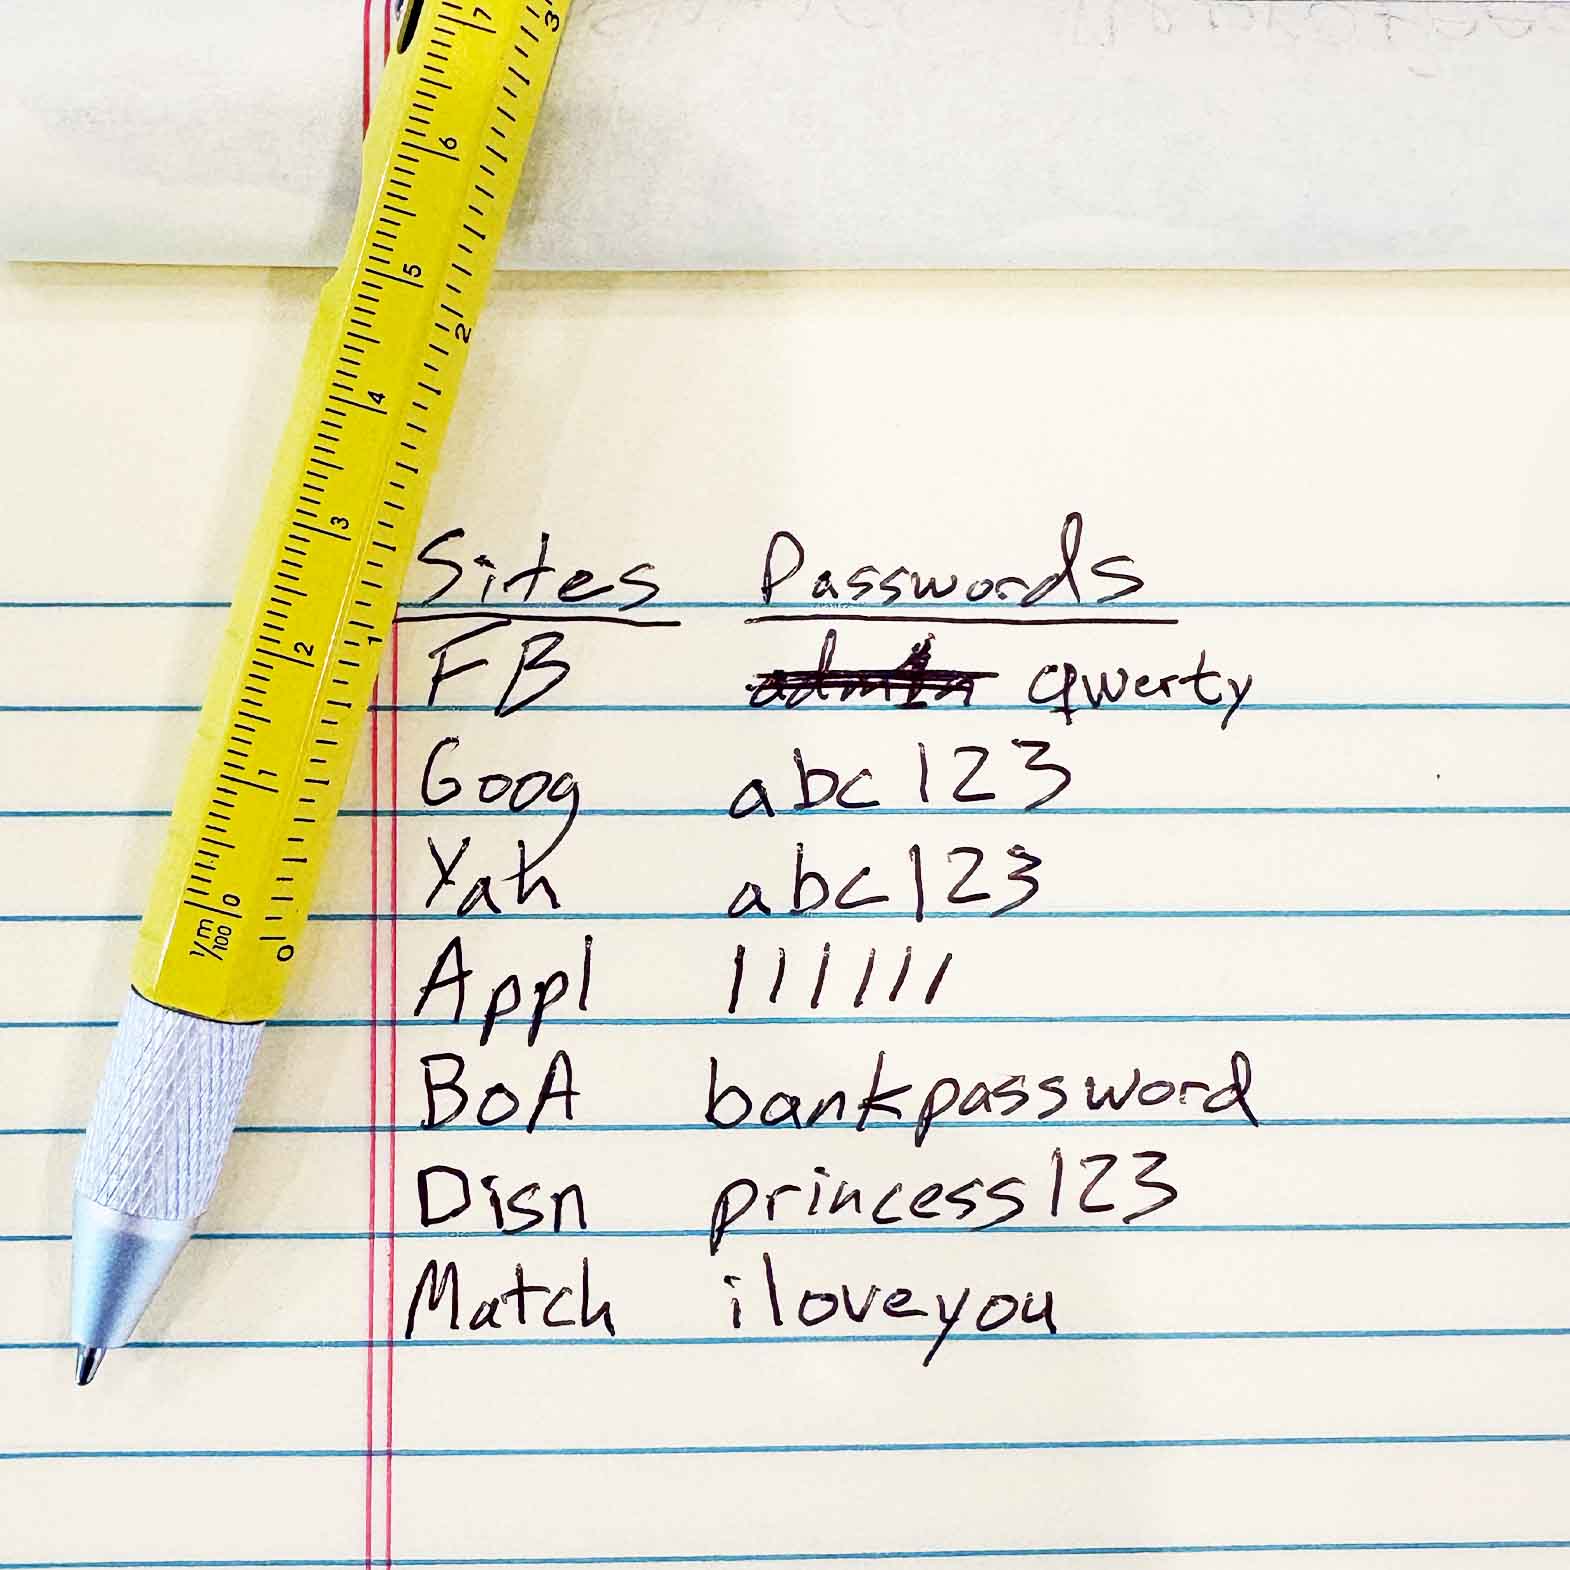 Sites Passwords
FB admin qwerty
Goog abc123
Yah abc123
Appl 111111
BoA bankpassword
Disn princess123
Match iloveyou
7
6
5
4
3
2
1
0
1/m
/100
3
2
1
0